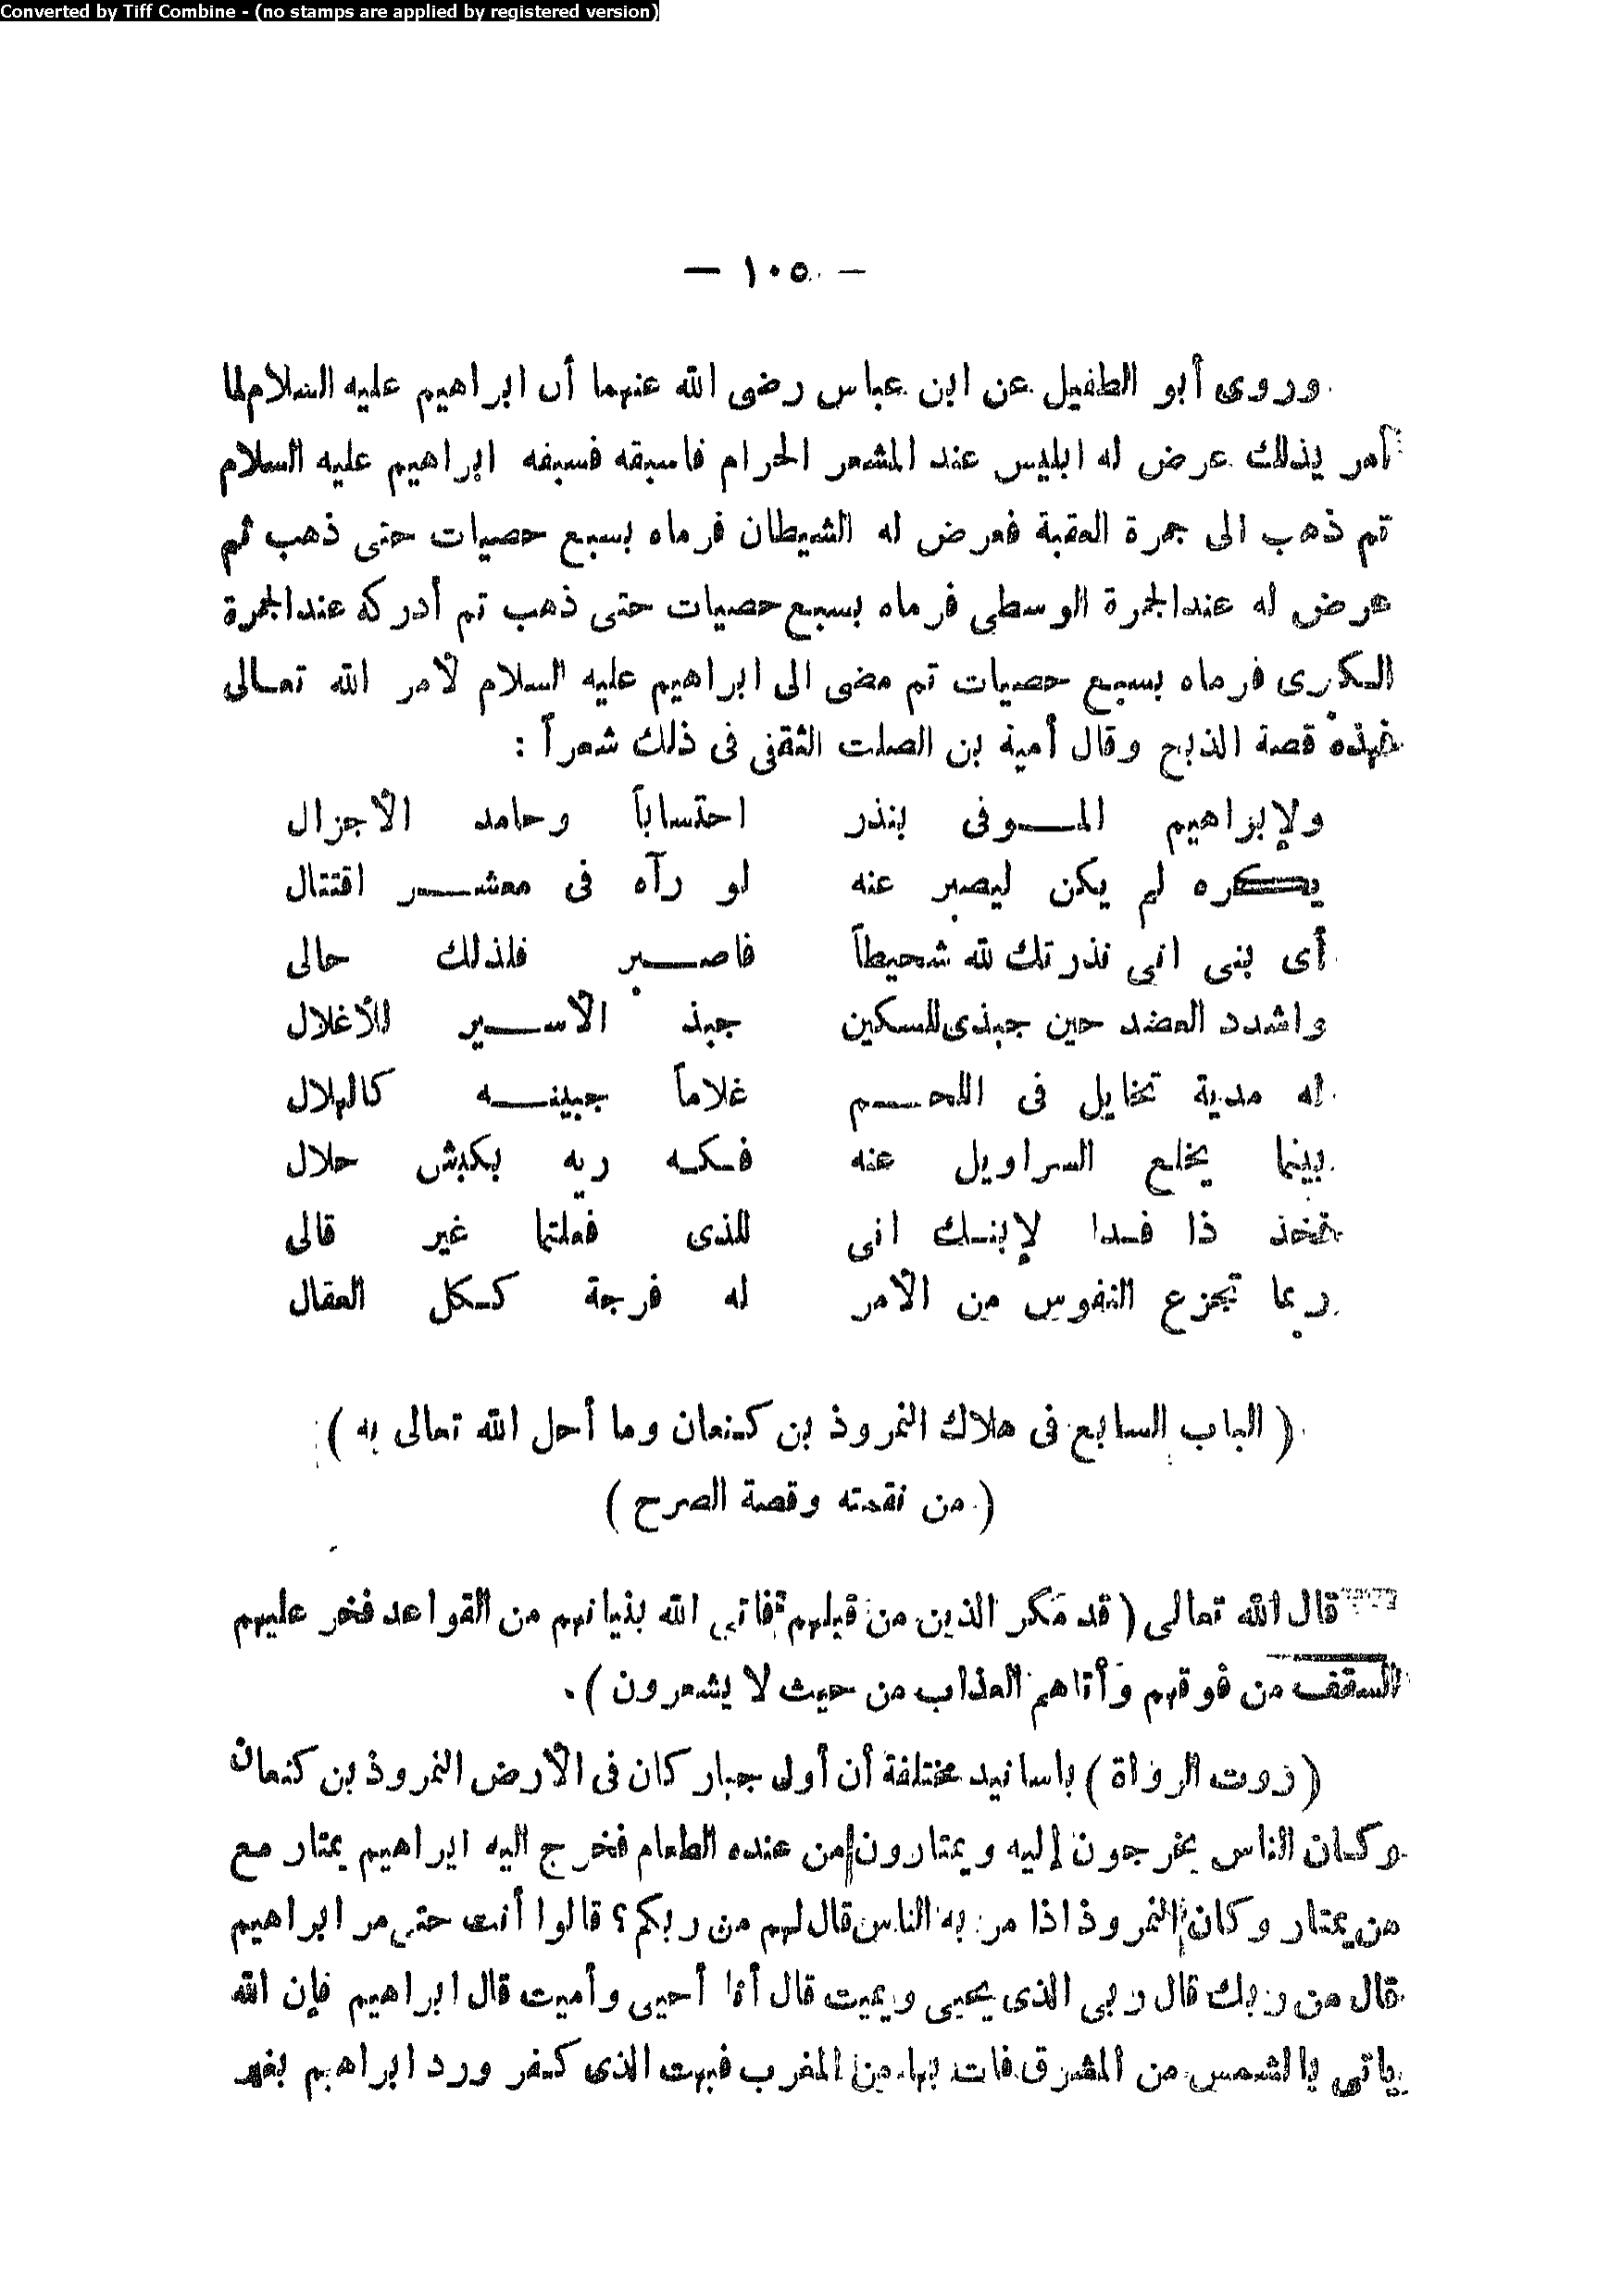 Converted by Tiff Combine - (no stamps are applied by registered version)
— ١٠٥ —
وروى أبو الطفيل عن ابن عباس رضى الله عنهما أن ابراهيم عليه السلام لما
أمر بذلك عرض له ابليس عند المشعر الحرام فاسبقه فسبقه ابراهيم عليه السلام
ثم ذهب الى جمرة العقبة فعرض له الشيطان فرماه بسبع حصيات حتى ذهب ثم
عرض له عند الجمرة الوسطى فرماه بسبع حصيات حتى ذهب ثم أدركه عند الجمرة
الكبرى فرماه بسبع حصيات ثم مضى الى ابراهيم عليه السلام لأمر الله تعالى
فهذه قصة الذبح وقال أمية بن الصلت الثقفى فى ذلك شعراً :
ولإبراهيم الموفى بنذر احتساباً وحامد الأجزال
بكره لم يكن ليصبر عنه لو رآه فى معشر اقتتال
أى بنى انى نذرتك لله شحيطاً فاصبر فلذلك حالى
واشدد العضد حين جبذى للسكين جبذ الأسير للأغلال
له مدية تخايل فى اللحم غلاماً جبينه كالهلال
بينما يخلع السراويل عنه فكه ربه بكبش حلال
تخذ ذا فدا لإبنك انى للذى فعلتما غير قالى
ربما تجزع النفوس من الأمر له فرجة ككل العقال
( الباب السابع فى هلاك النمروذ بن كنعان وما أحل الله تعالى به )
( من نقمته وقصة الصرح )
قال الله تعالى ( قد مكر الذين من قبلهم فأتى الله بنيانهم من القواعد فخر عليهم
السقف من فوقهم وأتاهم العذاب من حيث لا يشعرون ) .
( روت الرواة ) باسانيد مختلفة أن أول جبار كان فى الأرض النمروذ بن كنعان
وكان الناس يخرجون إليه ويمتارون من عنده الطعام فخرج اليه ابراهيم يمتار مع
من يمتار وكان النمروذ اذا مر به الناس قال لهم من ربكم؟ قالوا أنت حتى مر ابراهيم
قال من ربك قال ربى الذى يحيى ويميت قال أنا أحيى وأميت قال ابراهيم فإن الله
يأتى بالشمس من المشرق فات بها من المغرب فبهت الذى كفر ورد ابراهيم بغير